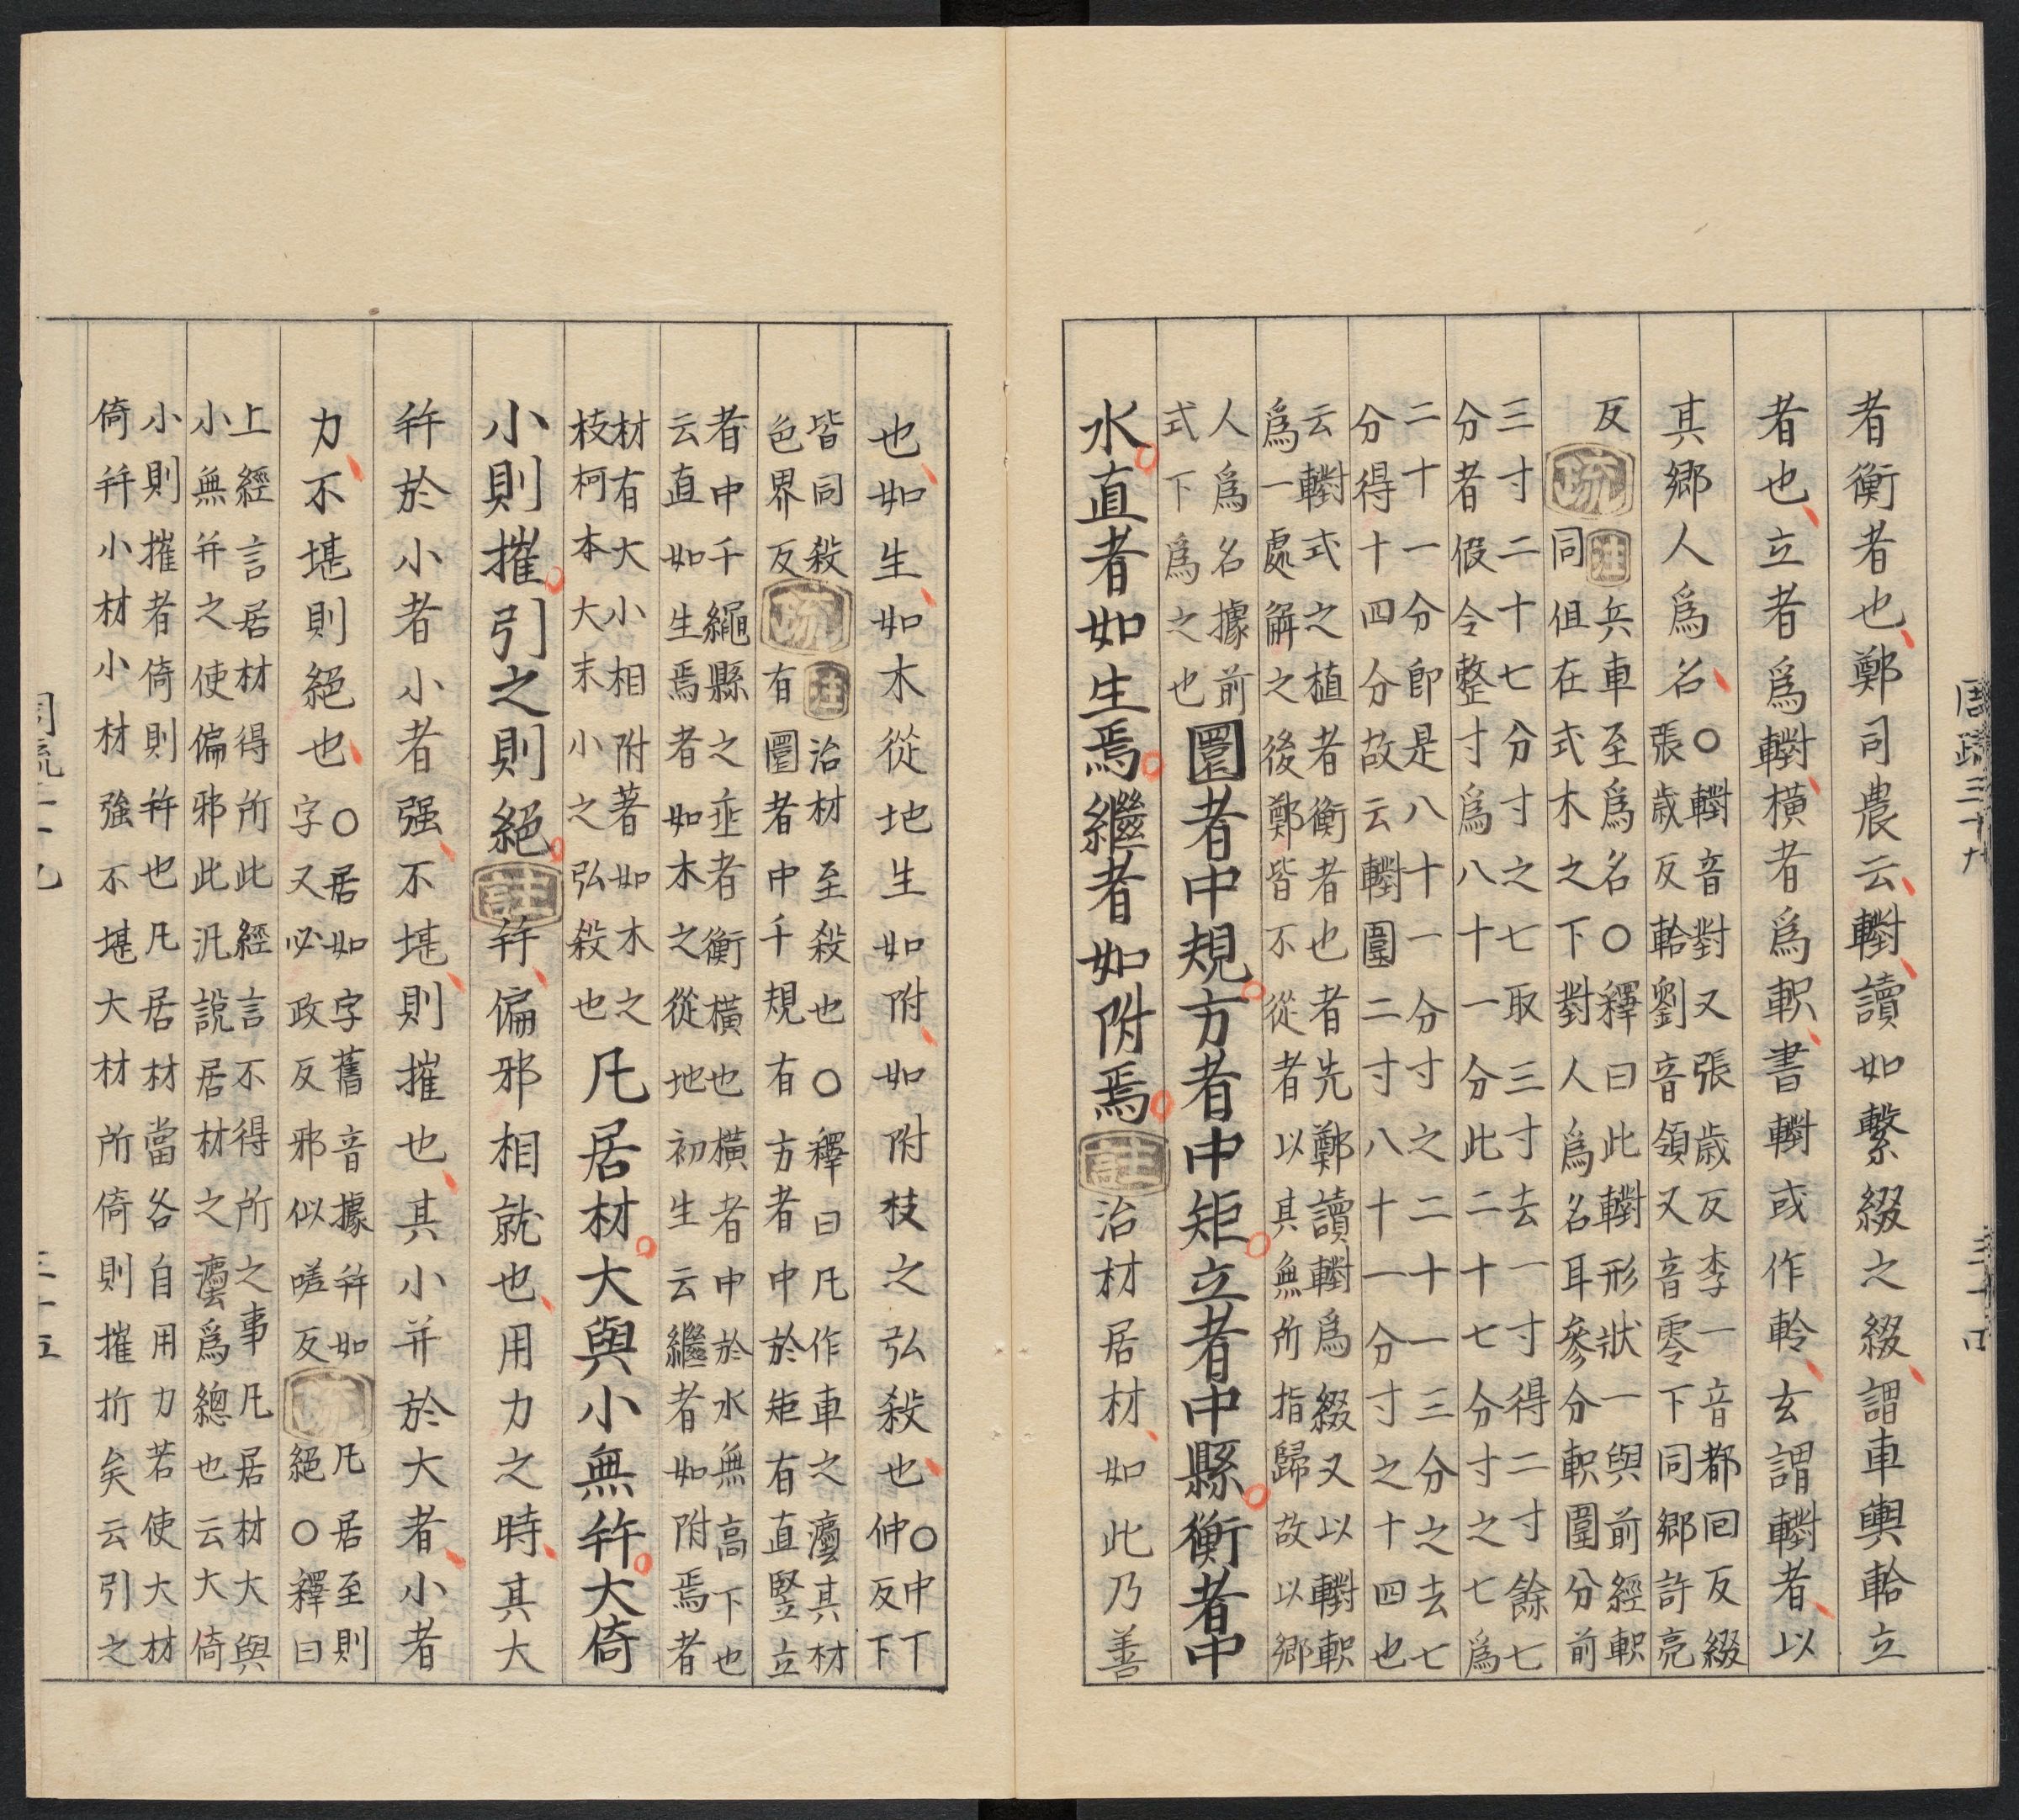 周疏三十九 三十四
者衡者也鄭司農云轛讀如繫綴之綴謂車輿軨立
者也立者爲轛橫者爲軹書轛或作軨玄謂轛者以
其鄉人爲名○轛音對又張歲反李一音都回反綴
張歲反軨劉音領又音零下同鄉許亮
反疏注兵車至爲名○釋曰此轛形狀一與前經軹
同但在式木之下對人爲名耳參分軹圍分前
三寸二十七分寸之七取三寸去一寸得二寸餘七
分者假令整寸爲八十一分此二十七分寸之七爲
二十一分即是八十一分寸之二十一三分之去七
分得十四分故云轛圍二寸八十一分寸之十四也
云轛式之植者衡者也者先鄭讀轛爲綴又以轛軹
爲一處解之後鄭皆不從者以其無所指歸故以鄉
人爲名據前
式下爲之也
圜者中規方者中矩立者中縣衡者中
水直者如生焉繼者如附焉註治材居材如此乃善
也如生如木從地生如附如附枝之弘殺也○中丁
仲反下
皆同殺注治材至殺也○釋曰凡作車之灋其材
色界反疏有圜者中規有方者中於矩有直豎立
者中千繩縣之垂者衡橫也橫者中於水無高下也
云直如生焉者如木之從地初生云繼者如附焉者
材有大小相附著如木之
枝柯本大末小之弘殺也
凡居材大與小無幷大倚
小則摧引之則絕註幷偏邪相就也用力之時其大
幷於小者小者强不堪則摧也其小幷於大者小者
力不堪則絕也○居如字舊音據幷如
字又必政反邪似嗟反疏凡居至則
絕○釋曰
上經言居材得所此經言不得所之事凡居材大與
小無幷之使偏邪此汎說居材之灋爲總也云大倚
小則摧者倚則幷也凡居材當各自用力若使大材
倚幷小材小材強不堪大材所倚則摧折矣云引之
周疏三十九 三十五